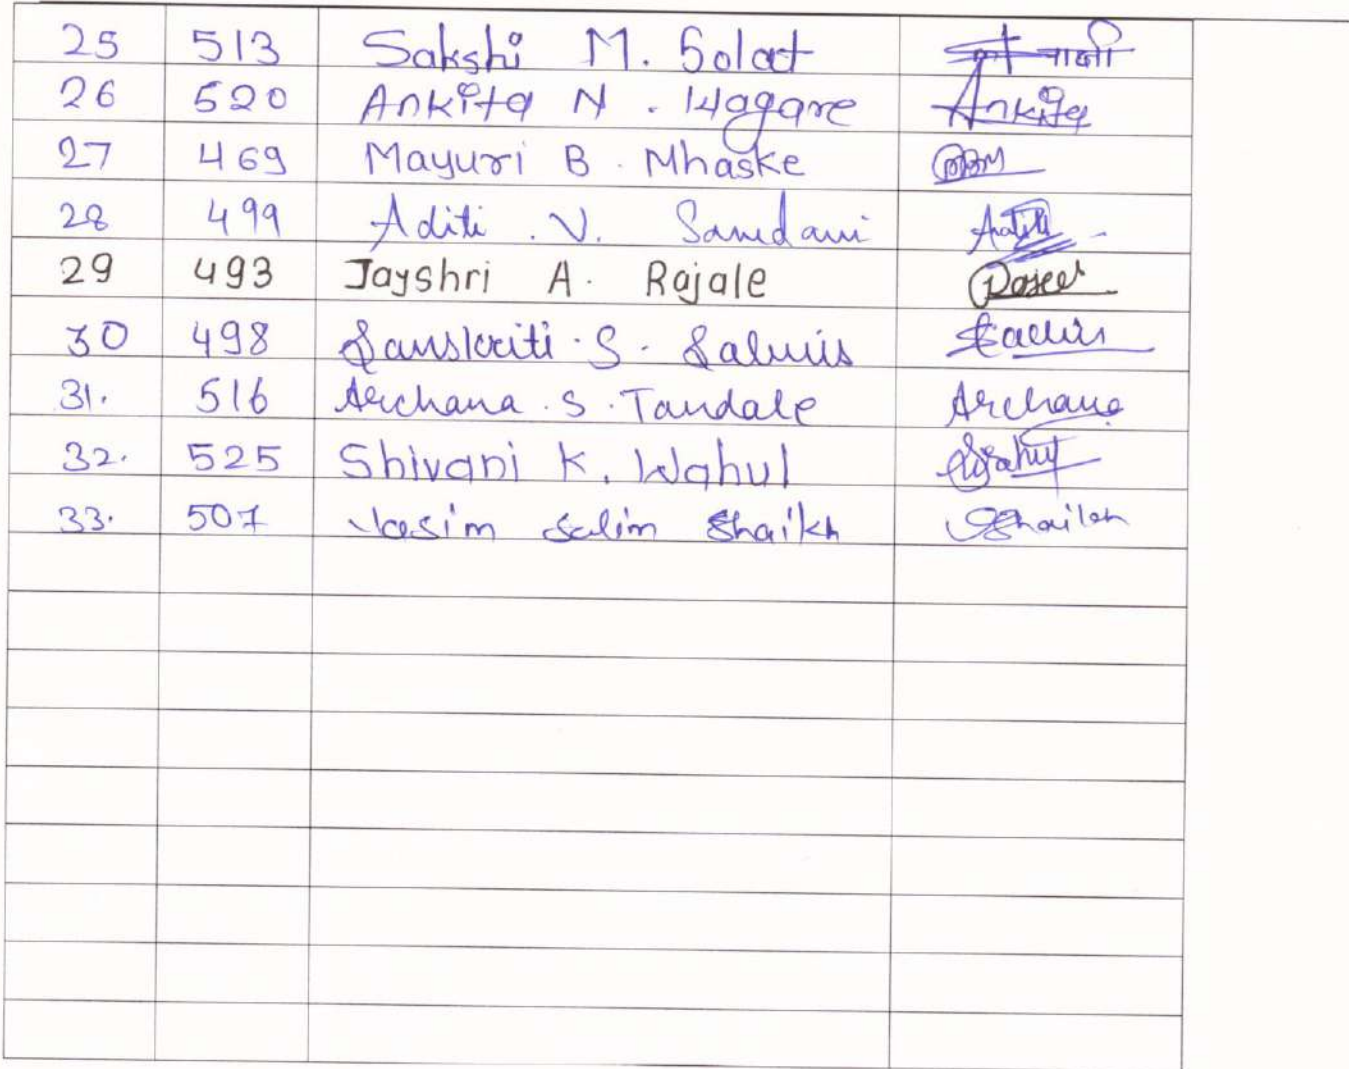 25 513 Sakshi M. Solat
26 520 Ankita N. Wagare Ankita
27 469 Mayuri B. Mhaske
28 499 Aditi . V. Samdani
29 493 Jayshri A. Rajale
30 498 Sanskriti . S. Salunis
31. 516 Archana . S . Tandale Archana
32. 525 Shivani K. Wahul Wahul
33. 507 Vasim Salim Shaikh Shaikh